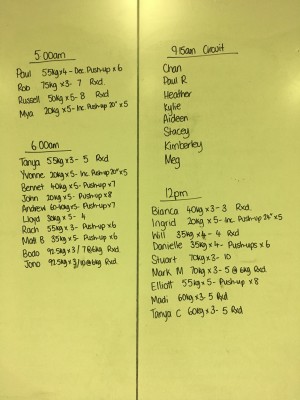 5:00am
Paul 55kg x 4 - Dec. Push-up x 6
Rob 75kg x 3 - 7 Rxd.
Russell 50kg x 5 - 8 Rxd
Mya 20kg x 5 - Inc. Push-up 20" x 5
6:00am
Tanya 55kg x 3 - 5 Rxd
Yvonne 20kg x 5 - Inc Push-up 20" x 5
Bennet 40kg x 5 - Push-up x 7
John 20kg x 5 - Push-up x 8
Andrew 60-40kg x 5 - Push-up x 7
Lloyd 30kg x 5 - 4
Rach 55kg x 3 - Push-up x 6
Matt B 35kg x 5 - Push-up x 6
Bodo 92.5kg x 3 / 7 @ 6kg Rxd.
Jono 92.5kg x 3 / 10 @ 6kg Rxd.
9:15am Circuit
Chan
Paul R
Heather
Kylie
Aideen
Stacey
Kimberley
Meg
12pm
Bianca 40kg x 3 - 3 Rxd.
Ingrid 20kg x 5 - Inc Push-up 24" x 5
Will 35kg x 4 - 4 Rxd
Danielle 35kg x 4 - Push-ups x 6
Stuart 70kg x 3 - 10
Mark M 70kg x 3 - 5 @ 6kg Rxd.
Elliott 55kg x 5 - Push-up x 8
Madi 60kg x 3 - 5 Rxd
Tanya C 60kg x 3 - 5 Rxd